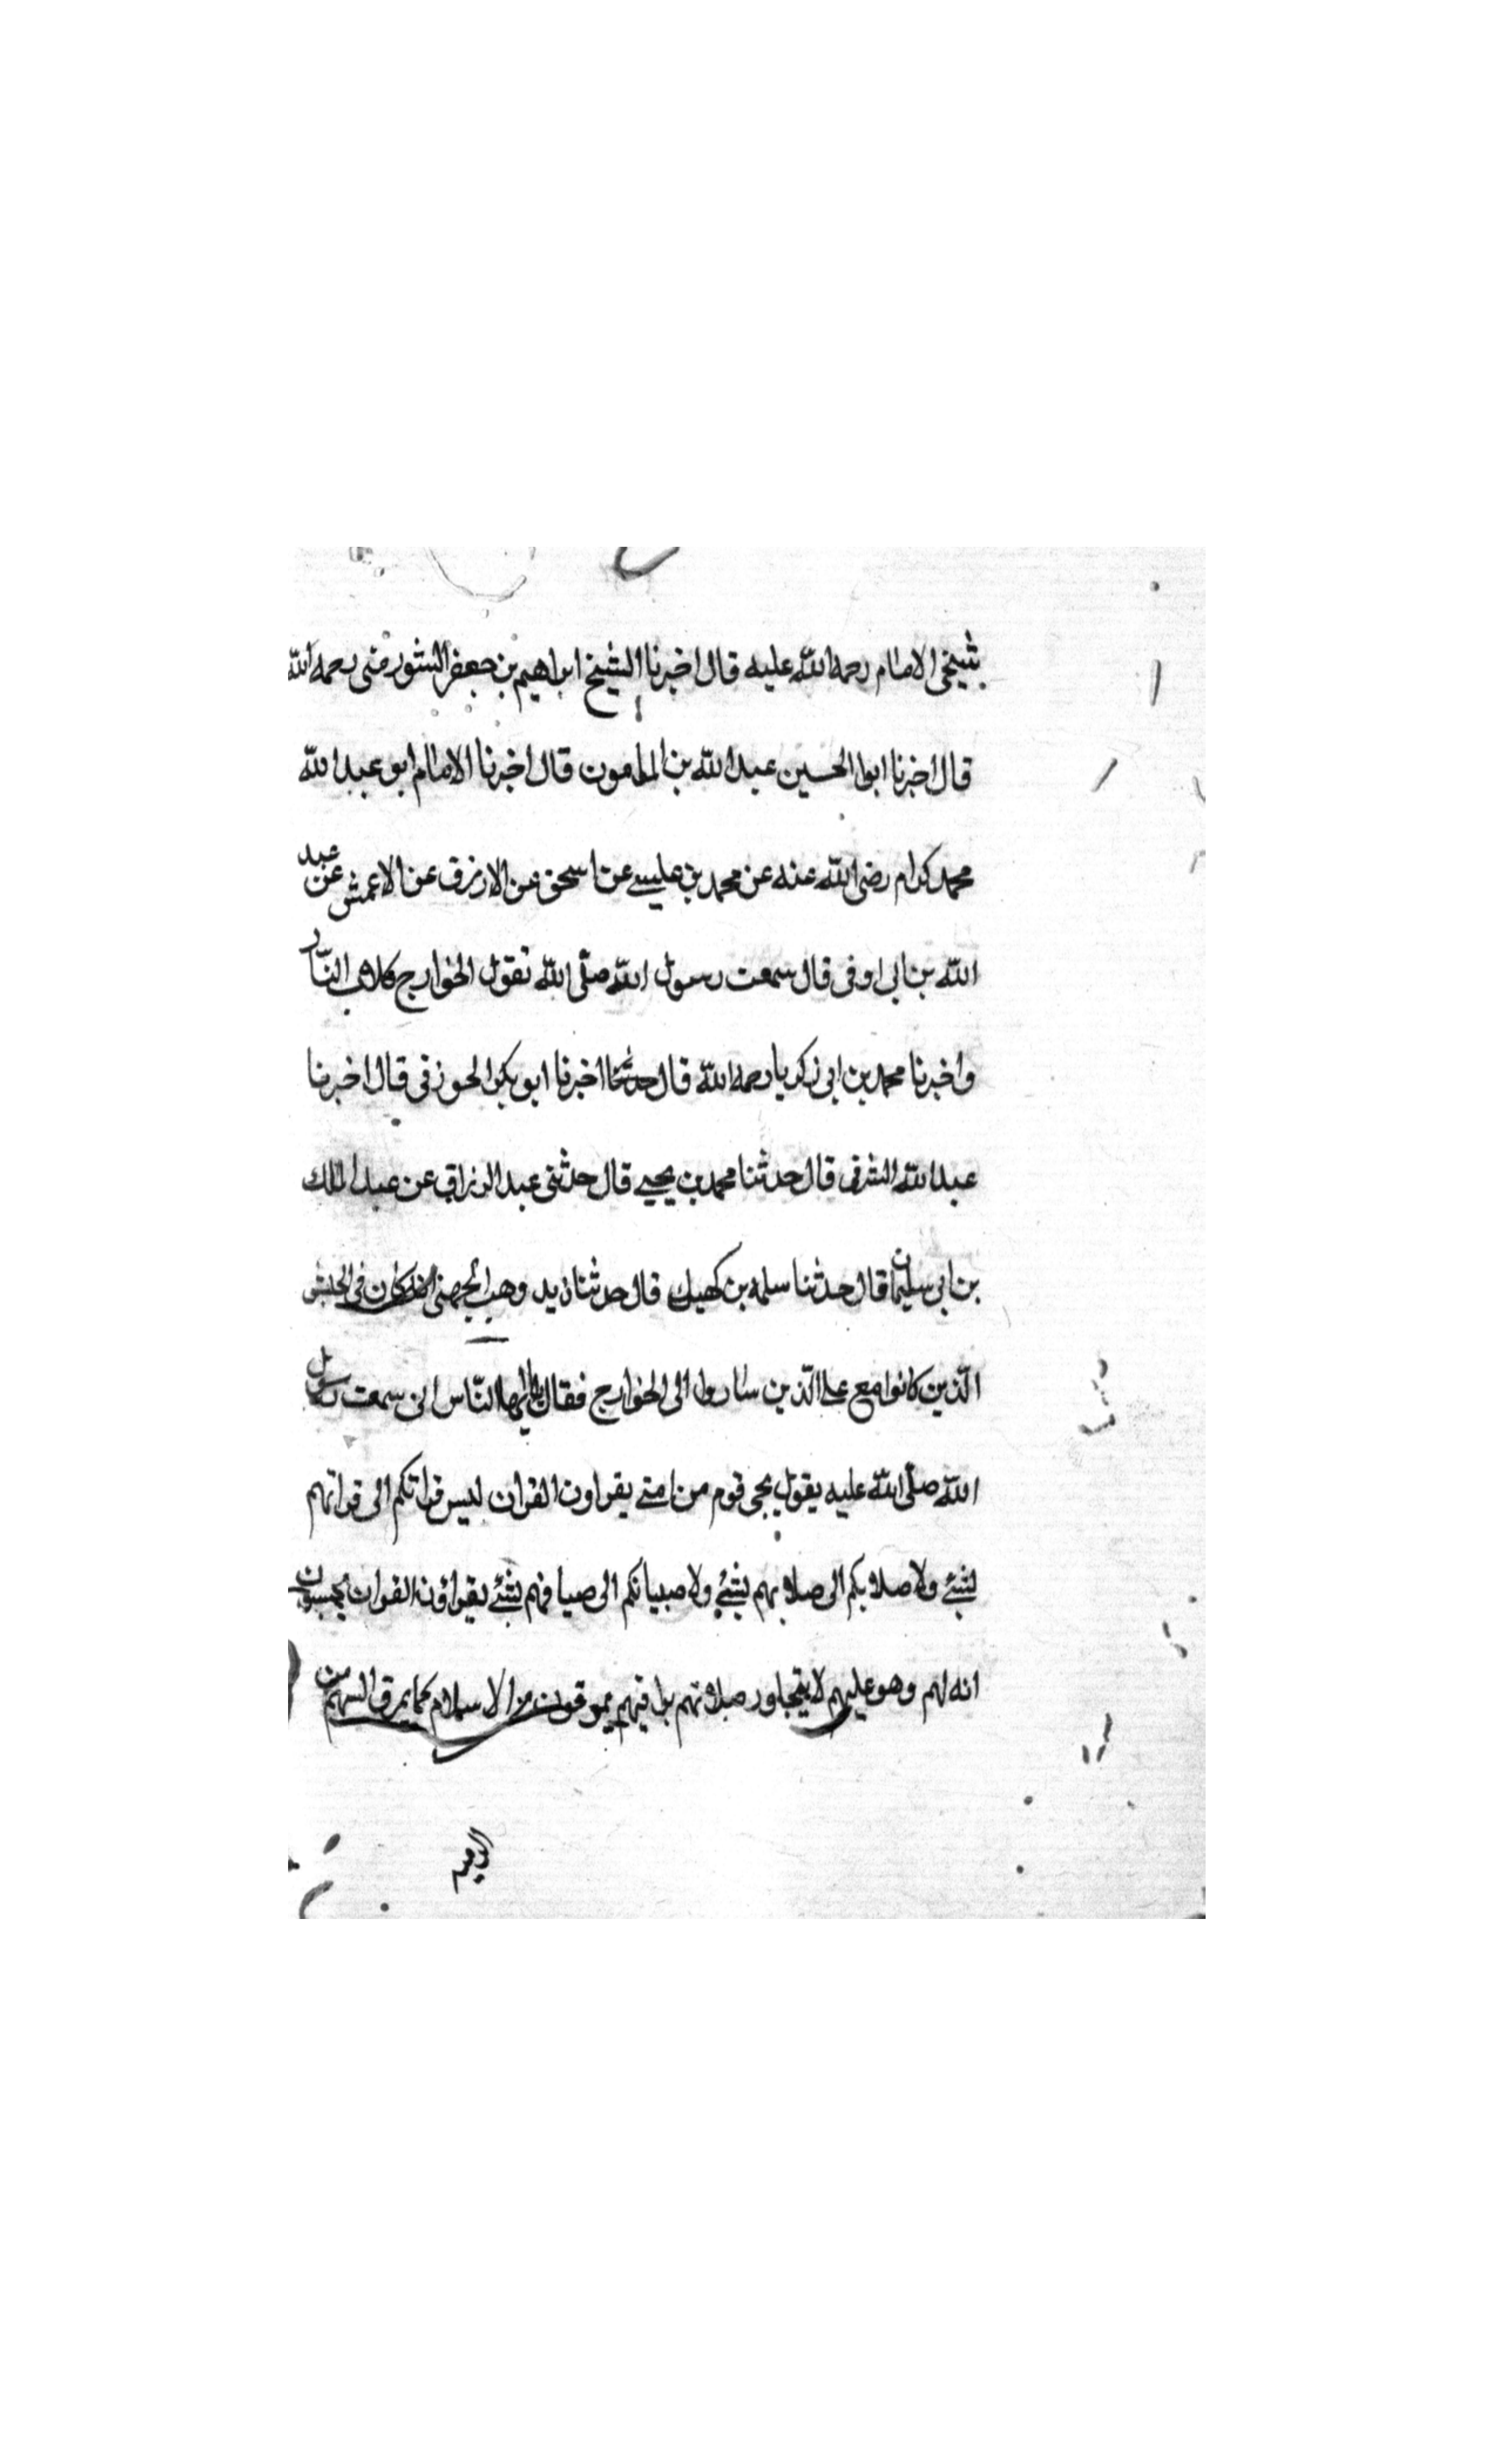 شيخى الامام رحمه الله عليه قال اخبرنا الشيخ ابراهيم بن جعفر الشورمنى رحمه الله
قال اخبرنا ابوا الحسين عبد الله بن المامون قال اخبرنا الامام ابو عبد الله
محمد كرام رضى الله عنه عن محمد بن عليسے عن اسحق عن الازرق عن الاعمش عن عبد
الله بن ابى اوفى قال سمعت رسول الله صلّى الله تقول الخوارج كلاب النّار
واخبرنا محمد بن ابى زكريا رحمه الله قال حدثنا اخبرنا ابو بكر الحوزقى قال اخبرنا
عبد الله الشرقى قال حدثنا محمد بن يحيے قال حدثنى عبد الرزاق عن عبد الملك
بن ابى سليمان قال حدثنا سلمه بن كهيل قال حدثنا زيد وهب الجهنى انه كان فى الجيش
الّذين كانوا مع على الّذين ساروا الى الخوارج فقال ايها النّاس انى سمعت رسول
الله صلّى الله عليه يقول يجى قوم من امتے يقراون القران ليس قراتكم الى قراتهم
بشئے ولا صلاتكم الى صلاتهم بشئے ولا صيبانكم الى صيافهم بشئے يقراؤن القران يحسبون
انه لهم وهو عليهم لا يتجاوز صلاتهم براقيهم يمرقون من الاسلام كما يمرق السهم من
الرميه